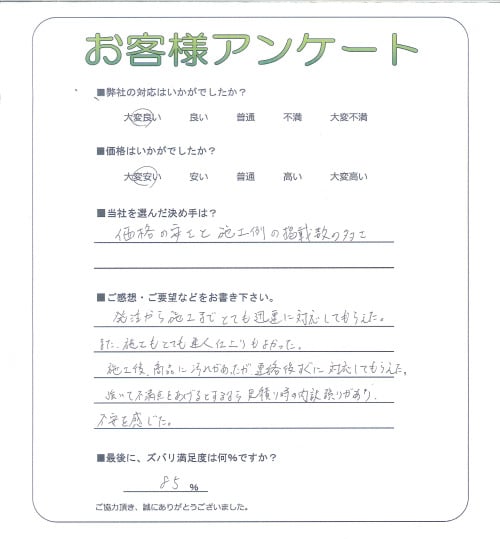 お客様アンケート
■弊社の対応はいかがでしたか？
大変良い 良い 普通 不満 大変不満
■価格はいかがでしたか？
大変安い 安い 普通 高い 大変高い
■当社を選んだ決め手は？
価格の安さと施工例の掲載数の多さ
■ご感想・ご要望などをお書き下さい。
発注から施工までとても迅速に対応してもらえた。
また、施工もとても 仕上りもよかった。
施工後、商品に汚れがあったが連絡後すぐに対応してもらえた。
強いて不満点をあげるとするなら見積り時の内訳 があり、
不安を感じた。
■最後に、ズバリ満足度は何%ですか？
85 %
ご協力頂き、誠にありがとうございました。